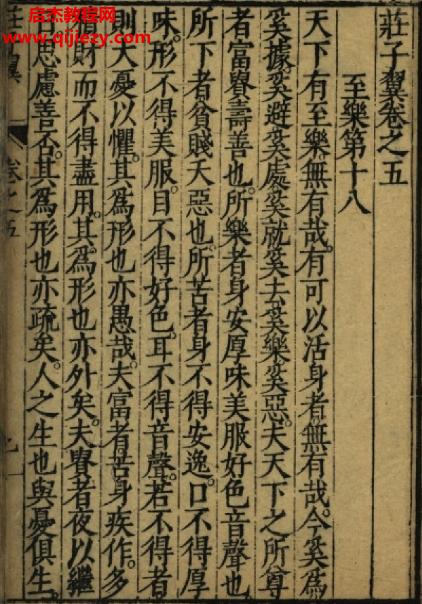 启杰教程网
www.qijiezy.com
莊子翼卷之五
至樂第十八
天下有至樂無有哉。有可以活身者無有哉。今奚爲
奚據奚避奚處奚就奚去奚樂奚惡。夫天下之所尊
者富貴壽善也。所樂者身安厚味美服好色音聲也
所下者貧賤夭惡也。所苦者身不得安逸。口不得厚
味。形不得美服。目不得好色。耳不得音聲。若不得者。
則大憂以懼。其爲形也亦愚哉。夫富者苦身疾作。多
財而不得盡用。其爲形也亦外矣。夫貴者夜以繼
思慮善否。其爲形也亦疏矣。人之生也與憂俱生。
卷之五